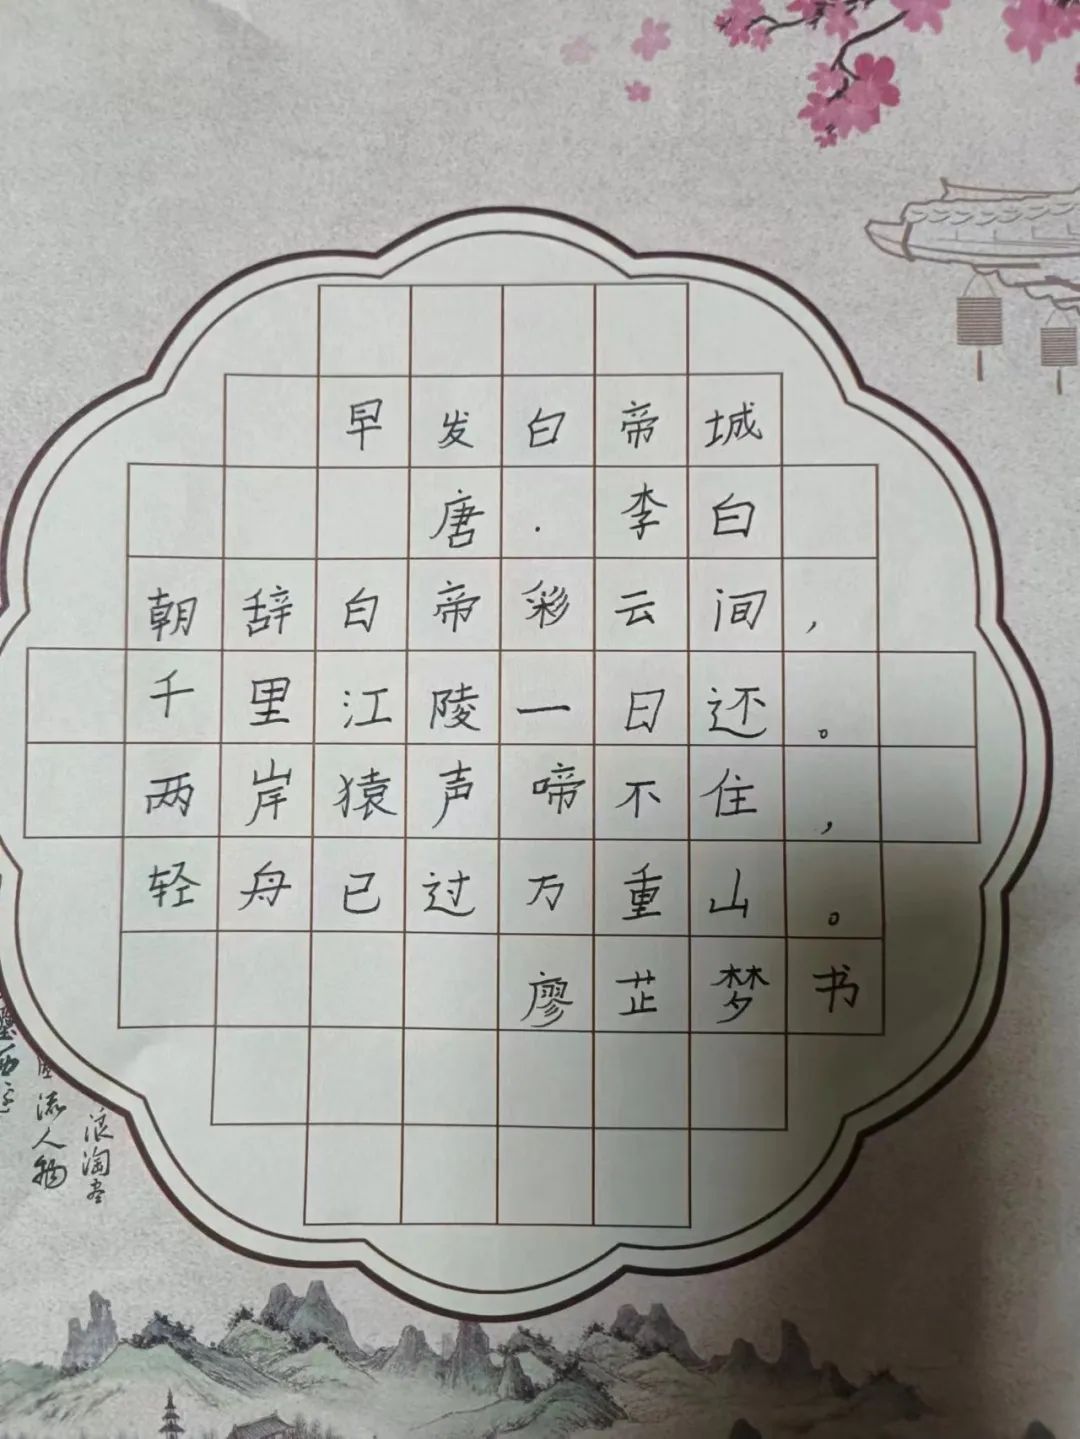 早发白帝城
唐·李白
朝辞白帝彩云间，
千里江陵一日还。
两岸猿声啼不住，
轻舟已过万重山。
廖芷梦书
浪淘尽
流人物